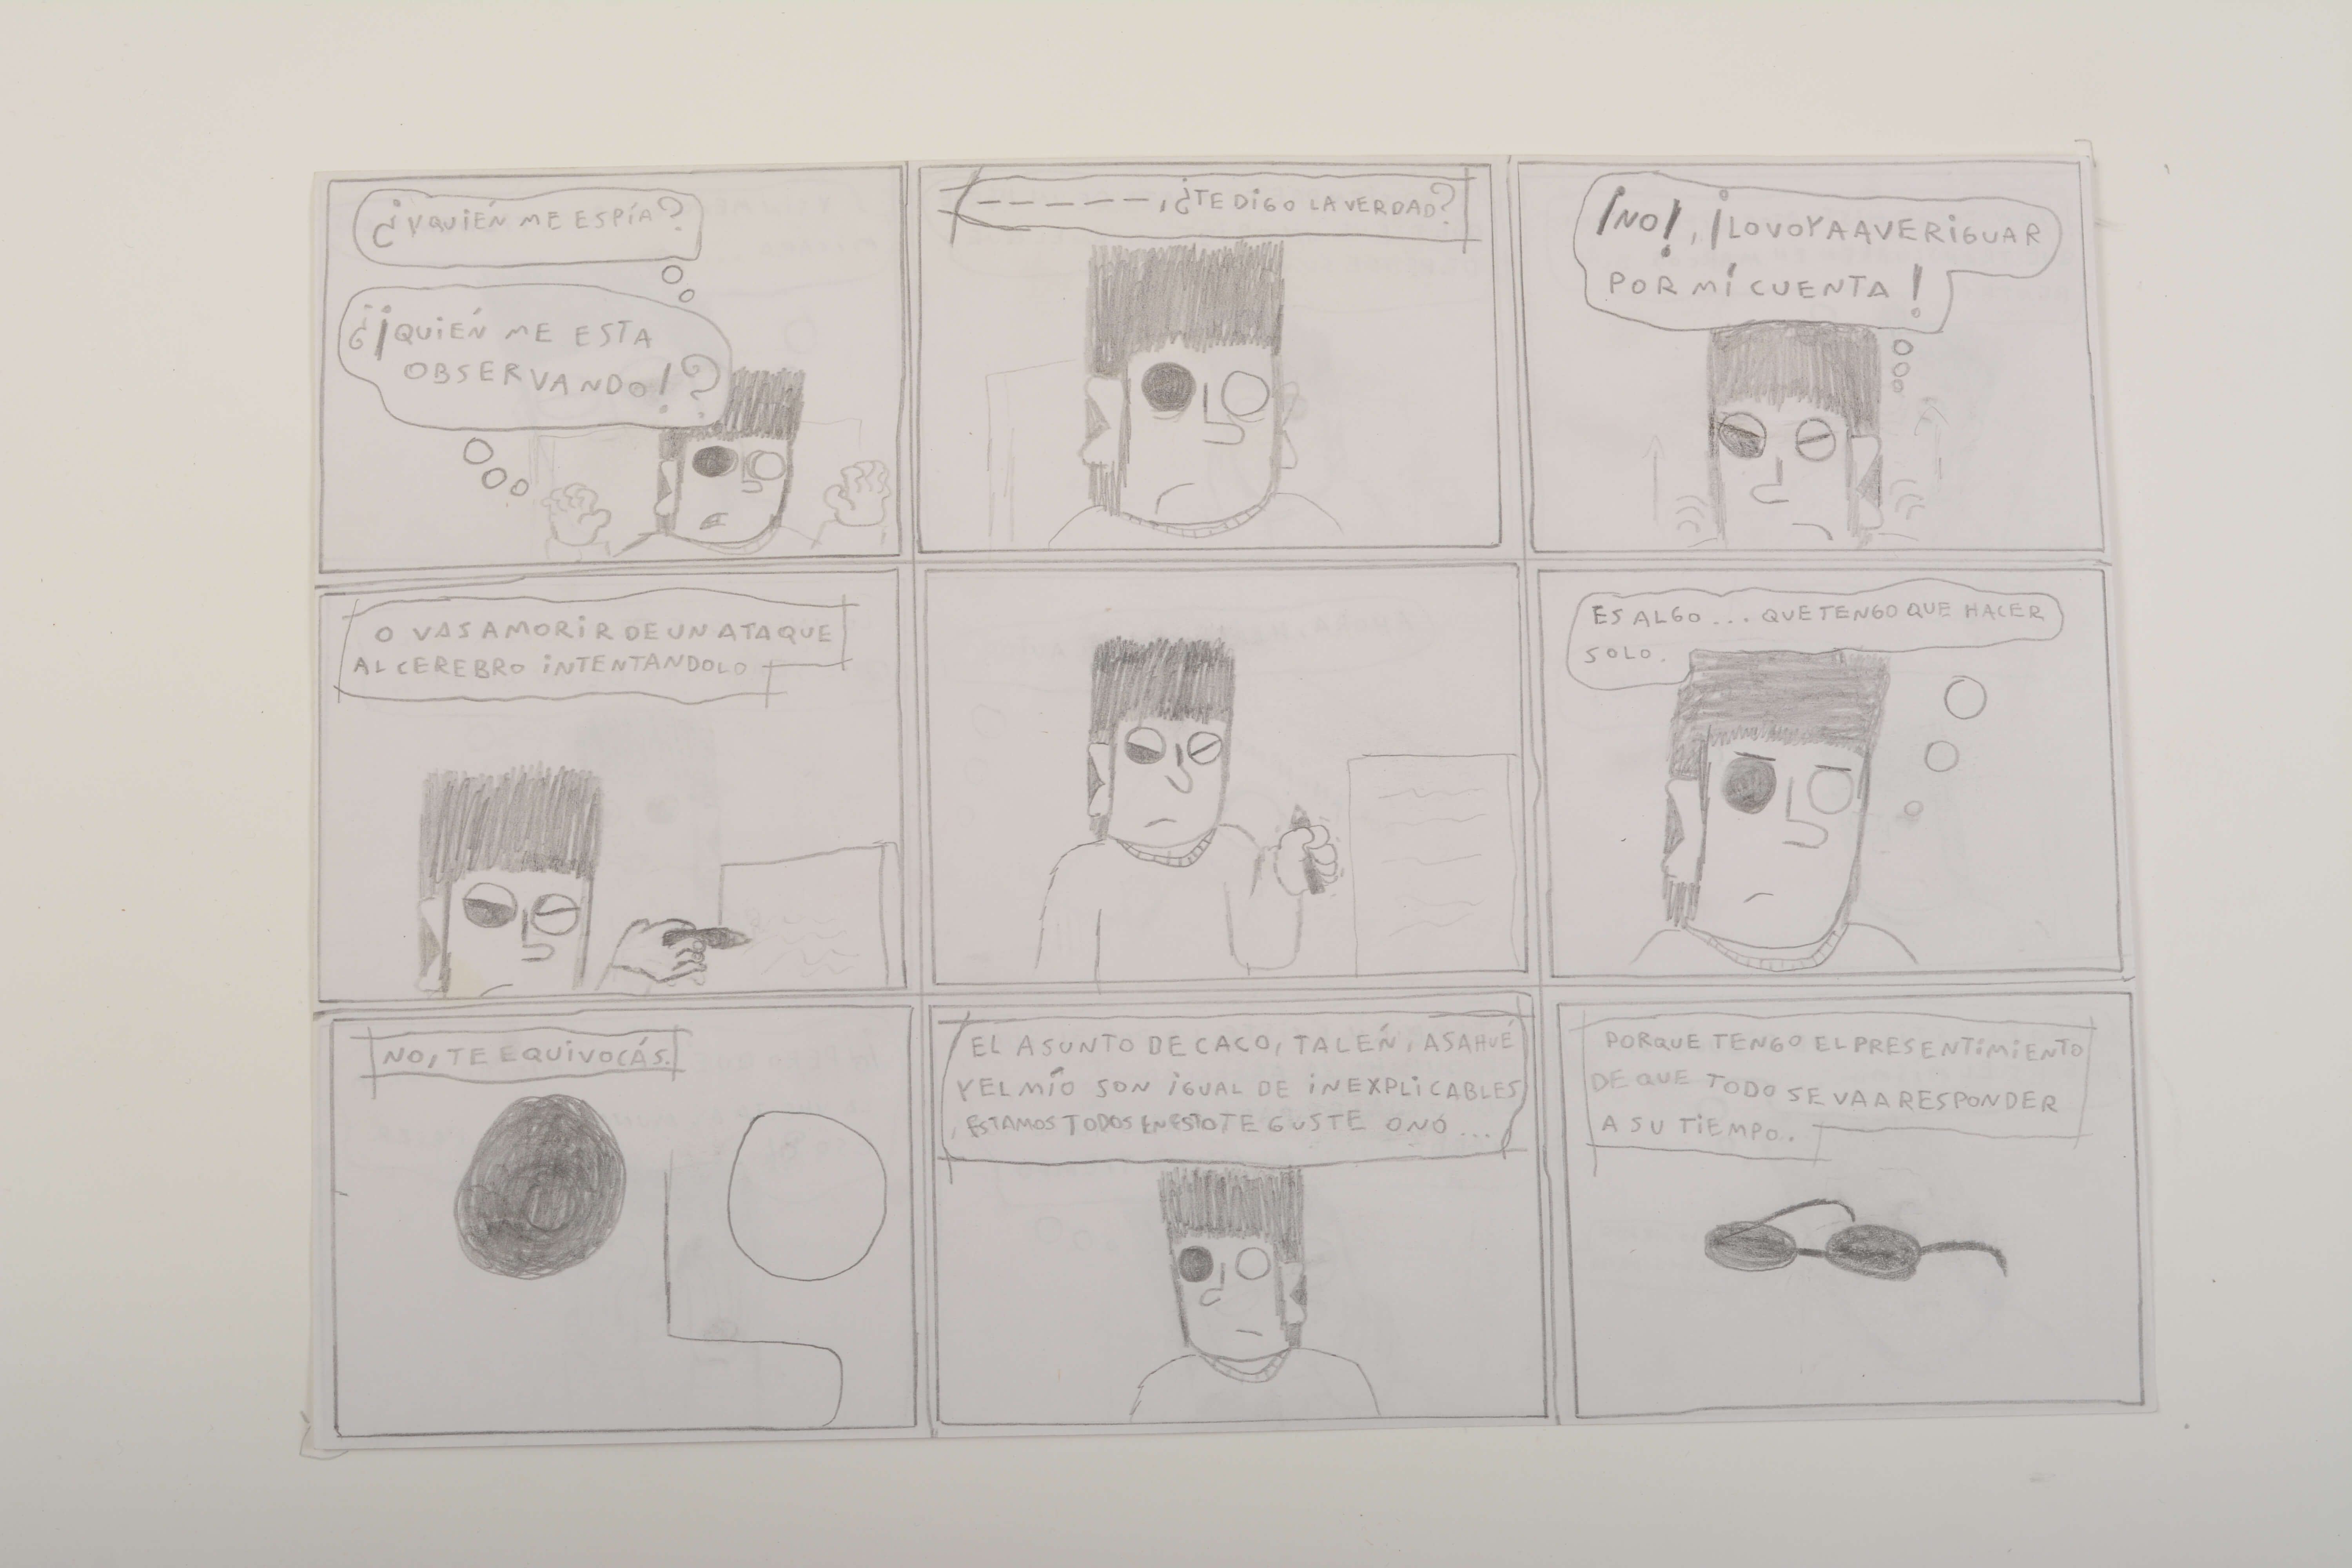 ¿Y QUIÉN ME ESPÍA?
¿¡QUIÉN ME ESTA
OBSERVANDO!?
– – – – –, ¿TE DIGO LA VERDAD?
¡NO!, ¡LO VOY A AVERIGUAR
POR MÍ CUENTA!
O VAS A MORIR DE UN ATAQUE
AL CEREBRO INTENTANDOLO
ES ALGO... QUE TENGO QUE HACER
SOLO.
NO, TE EQUIVOCÁS.
EL ASUNTO DE CACO, TALEÑ, ASAHUÉ
Y EL MÍO SON IGUAL DE INEXPLICABLES
, ESTAMOS TODOS EN ESTO TE GUSTE O NO...
PORQUE TENGO EL PRESENTIMIENTO
DE QUE TODO SE VA A RESPONDER
A SU TIEMPO.